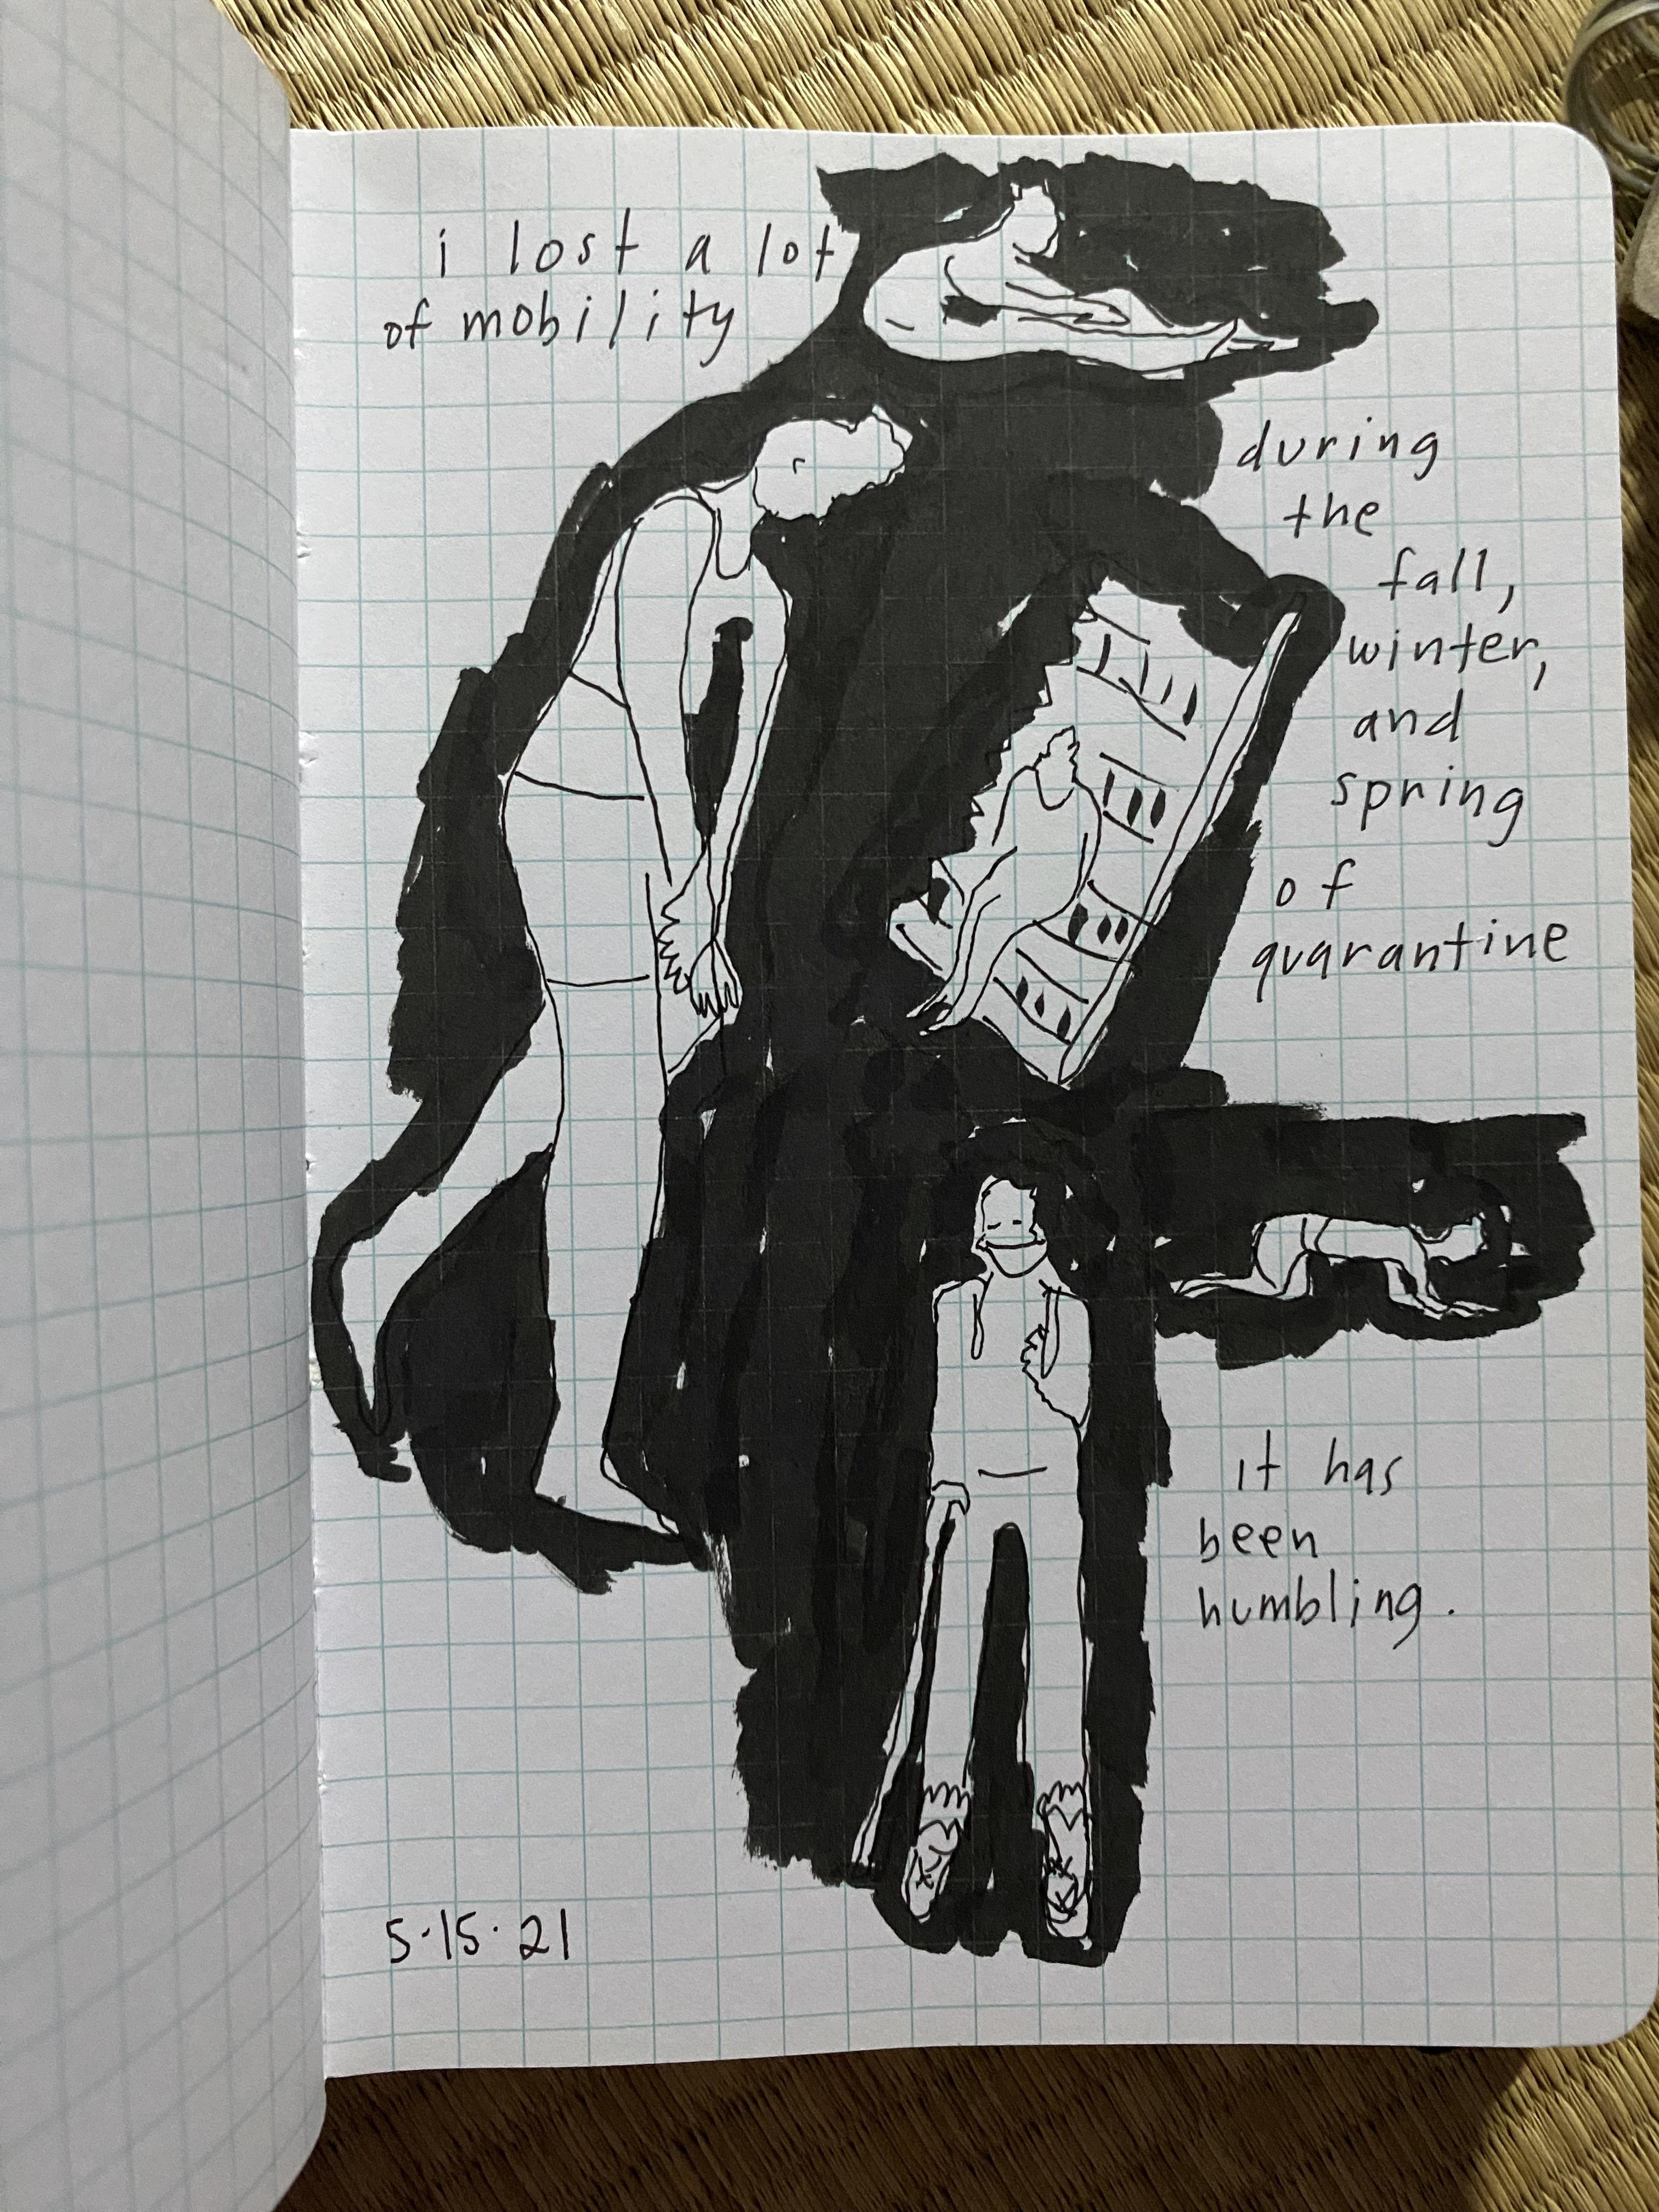 i lost a lot
of mobility
during
the
fall,
winter,
and
spring
of
quarantine
it has
been
humbling.
5·15·21